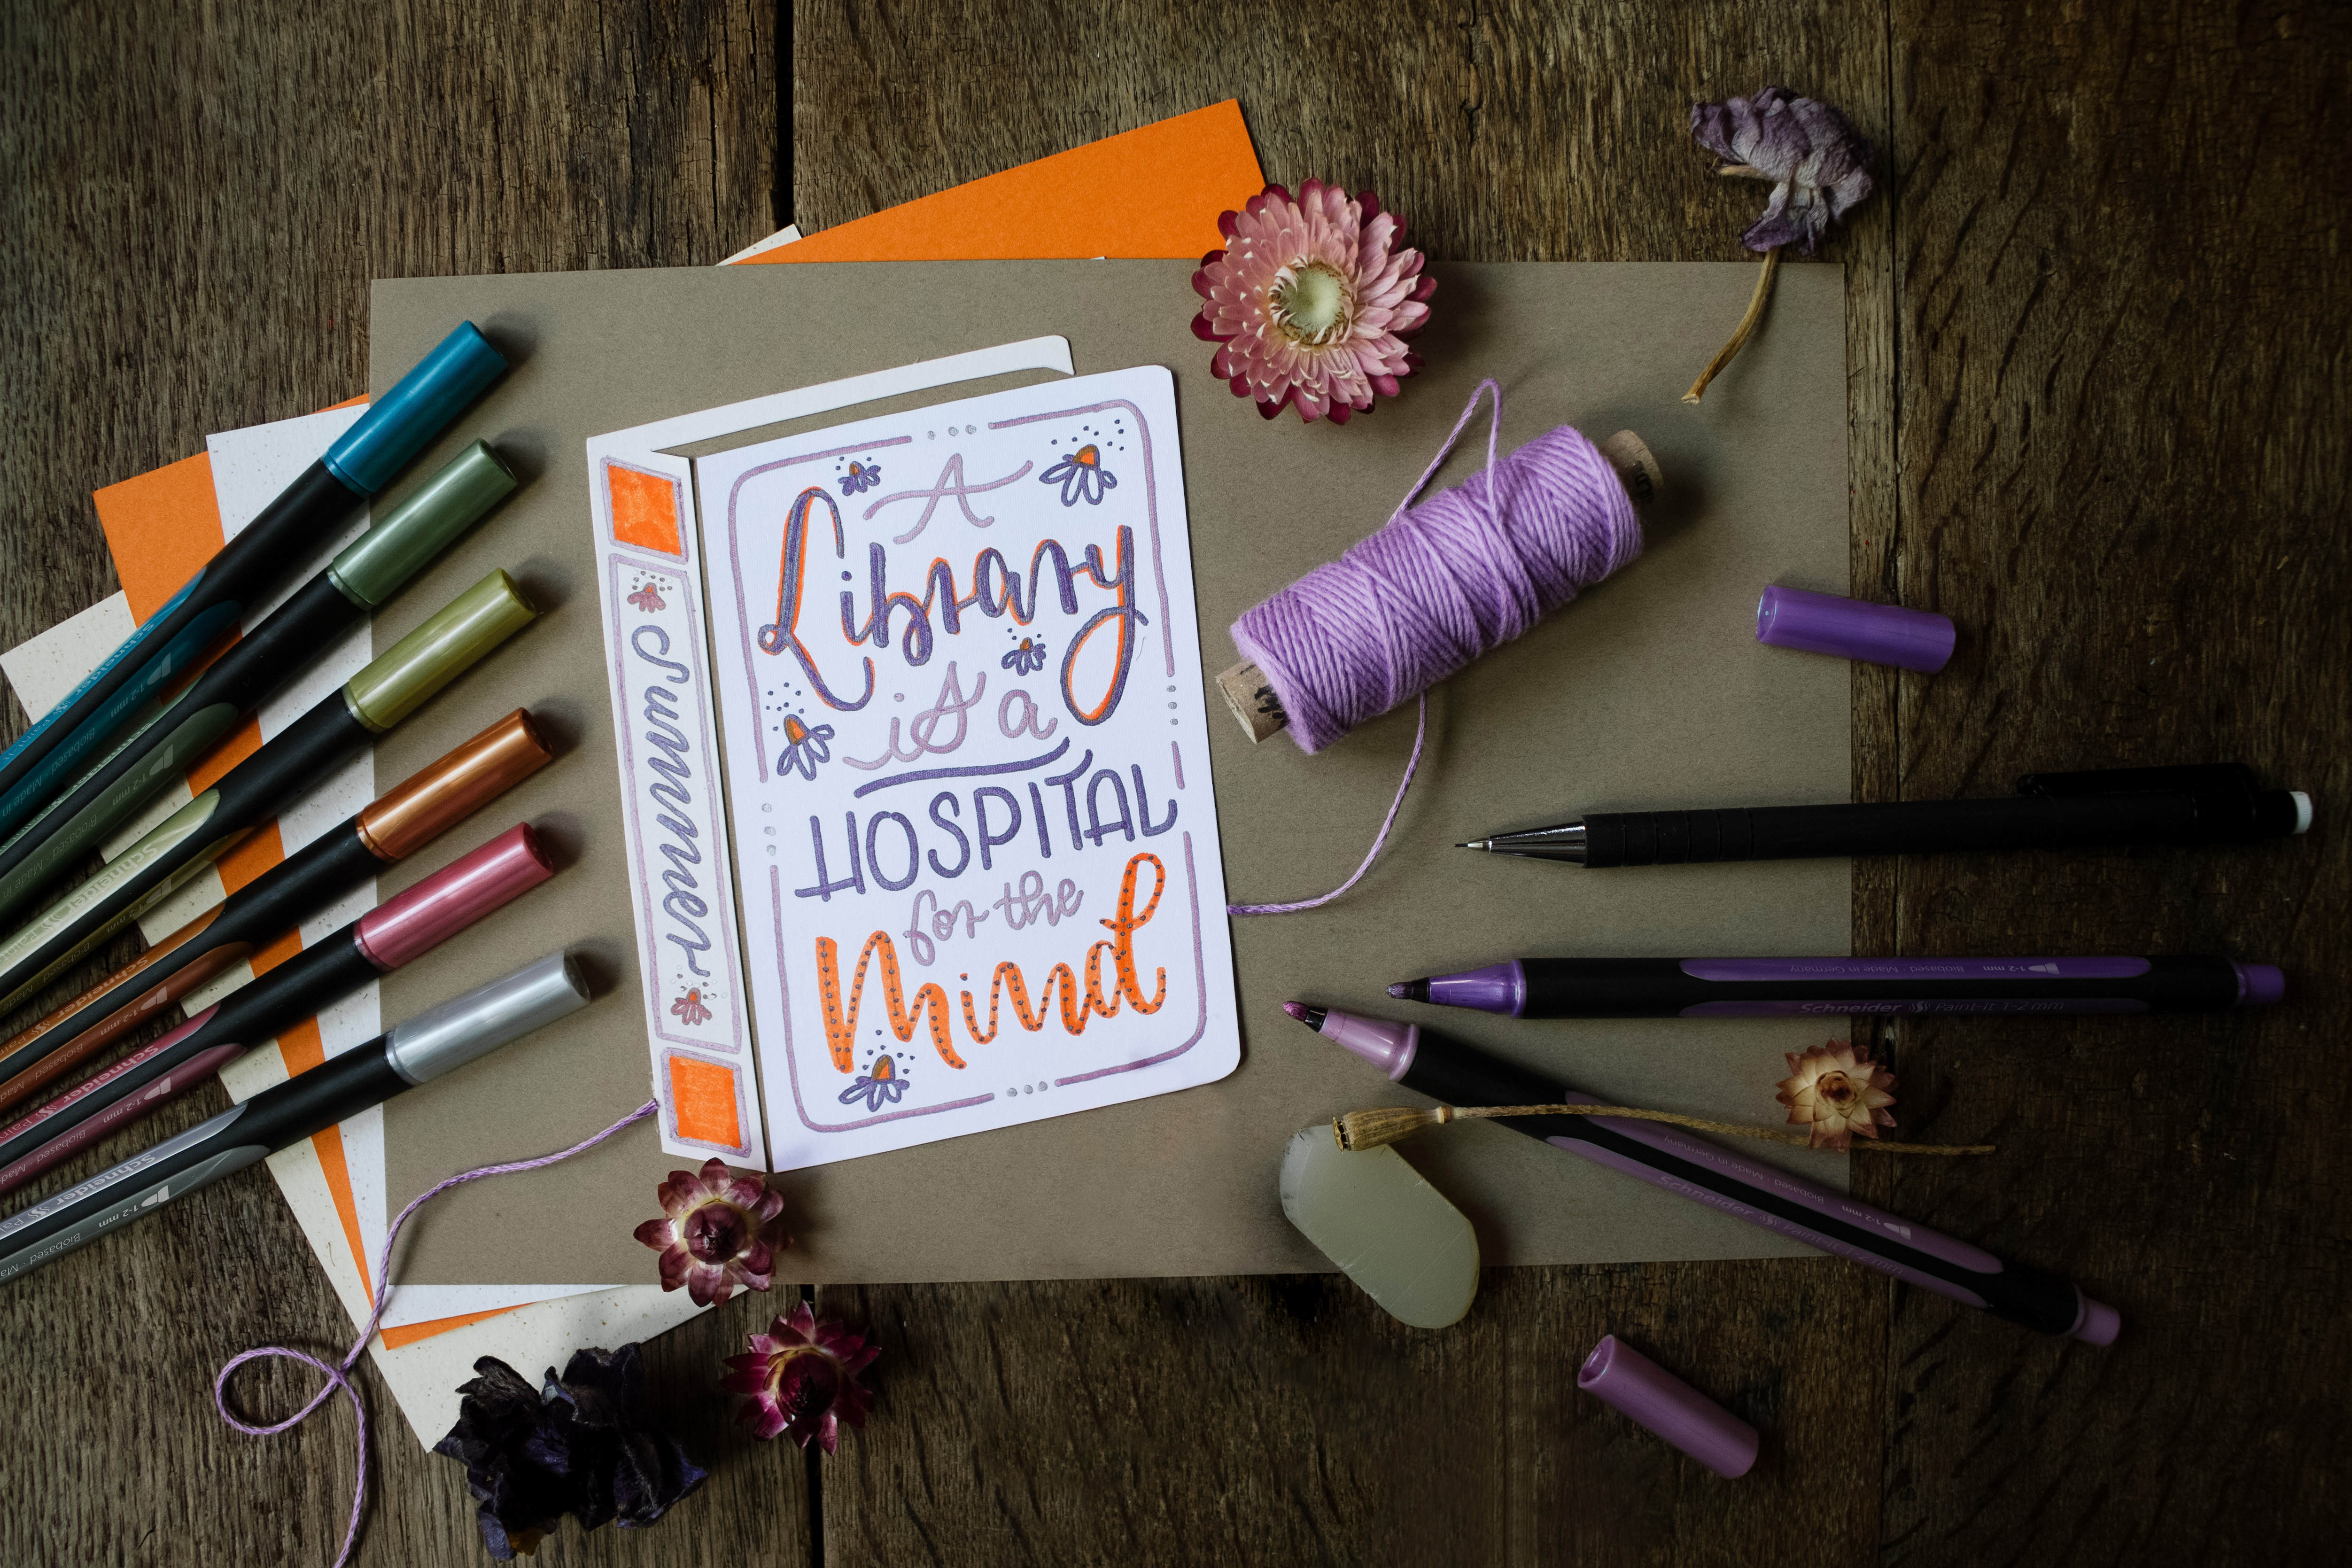 A
Library
is a
HOSPITAL
for the
Mind
Summer
Schneider Paint-it 1-2 mm
Biobased · Made in Germany 1-2 mm
Schneider Paint-it 1-2 mm
Made in Germany 1-2 mm
Schneider
Biobased · Made in 1-2 mm
Biobased · Made in 1-2 mm
Schneider
Biobased 1-2 mm
Schneider
Biobased 1-2 mm
Schneider
Biobased 1-2 mm
Schneider
Biobased 1-2 mm